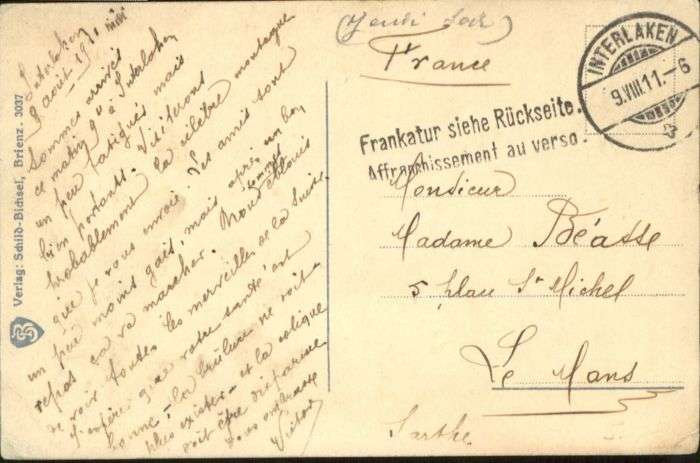 Interlaken
8 août 1911
Sommes arrivés
ce matin à Interlaken
un peu fatigués mais
bien portants. Visiterons
probablement la célèbre montagne
que je vous envoie. Les amis sont
un peu moins gais, mais après un bon
repas ça va marcher. Nous sommes
de voir toutes les merveilles de la Suisse.
J'espère que votre santé est
bonne, la brûlure ne doit
plus exister et la colique
doit être disparue
Vous embrasse
Victor
Verlag: Schild-Bichsel, Brienz. 3037
(Jeudi soir)
France
INTERLAKEN
9.VIII.11.-6
Frankatur siehe Rückseite.
Affranchissement au verso.
Monsieur
Madame Béasse
5 place St Michel
Le Mans
Sarthe